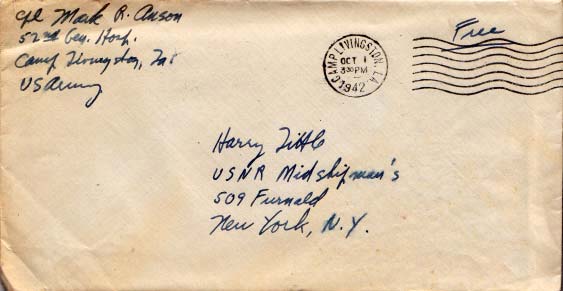 Cpl Mark R. Anson
52nd Gen. Hosp.
Camp Livingston, La
US Army
Free
CAMP LIVINGSTON, LA.
OCT 1
3 30 PM
1942
Harry Tittle
USNR Midshipman's
509 Furnald
New York, N.Y.